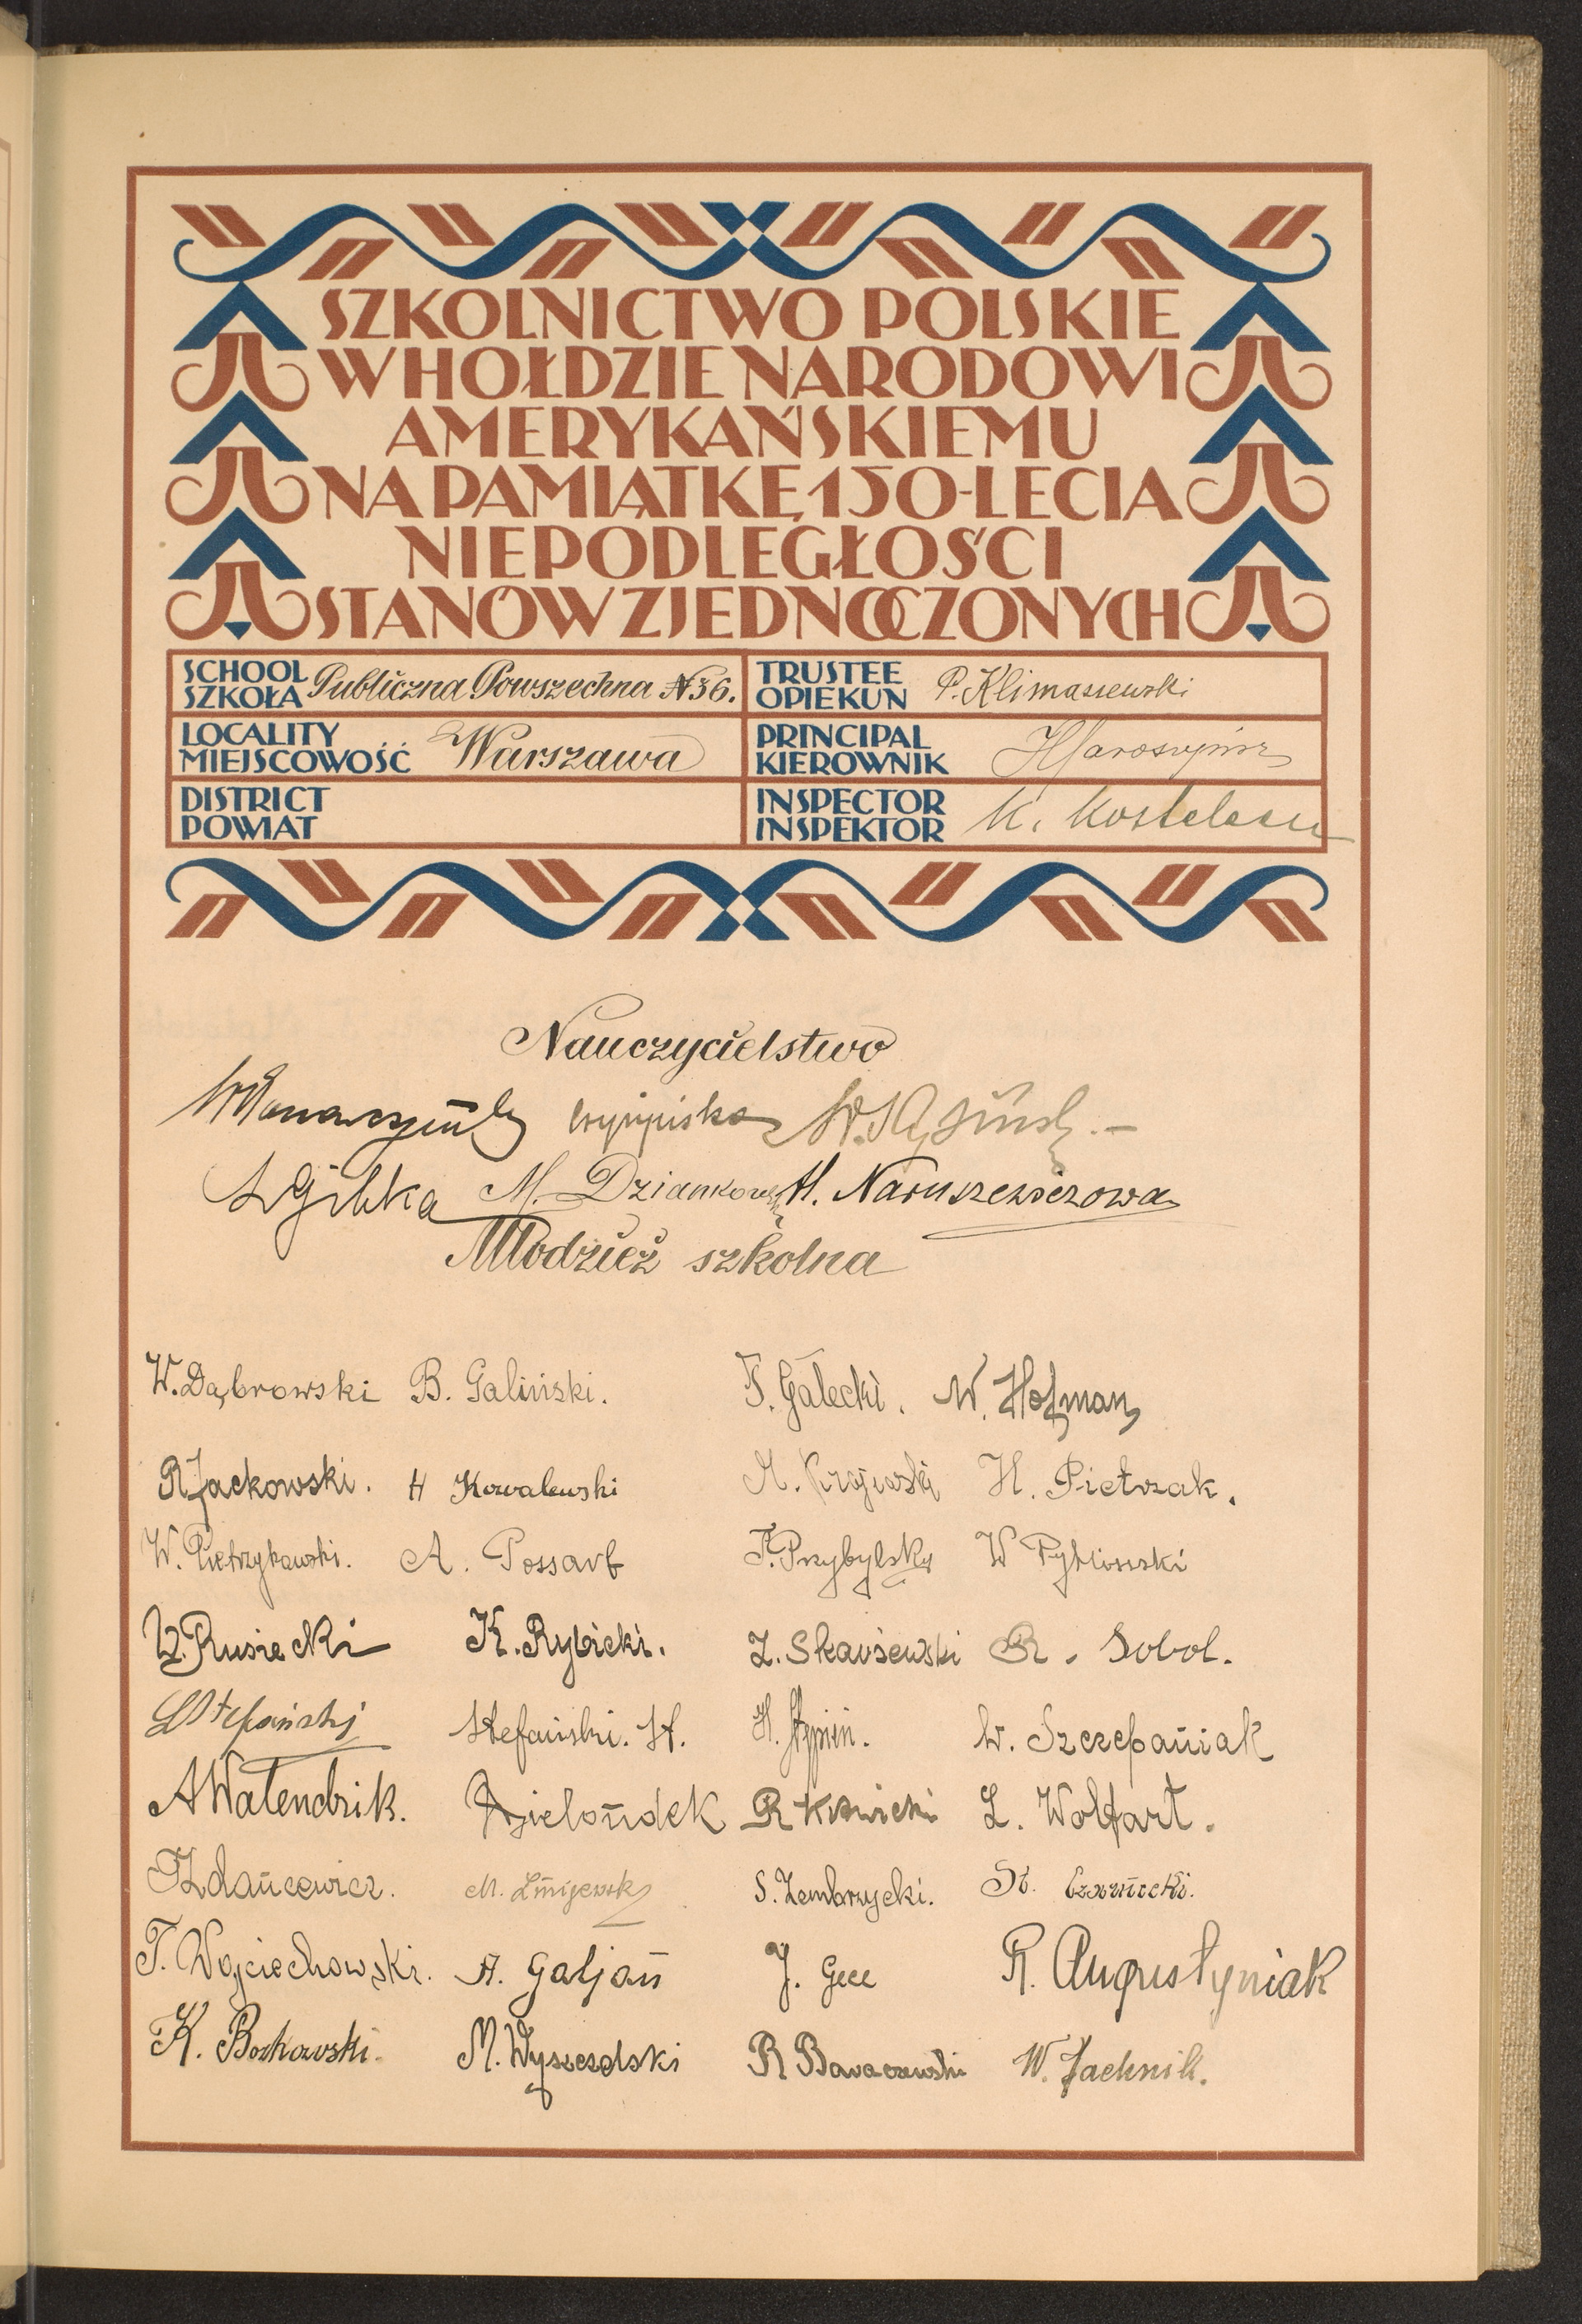 SZKOLNICTWO POLSKIE
W HOŁDZIE NARODOWI
AMERYKAŃSKIEMU
NA PAMIĄTKĘ 150-LECIA
NIEPODLEGŁOŚCI
STANÓW ZJEDNOCZONYCH
SCHOOL SZKOŁA Publiczna Powszechna №36. TRUSTEE OPIEKUN P. Klimaszewski
LOCALITY MIEJSCOWOŚĆ Warszawa PRINCIPAL KIEROWNIK
DISTRICT POWIAT INSPECTOR INSPEKTOR K.
Nauczycielstwo
M. Dziankowska H. Naruszewiczowa
Młodzież szkolna
W. Dąbrowski B. Galiński. F. Gałecki. W. Hofman
R Jackowski. H Kowalewski M. Krajewski H. Pietrzak.
W. Pietrzykowski. A. Possart F. Przybylski W
W. Rusiecki K. Rybicki. Z. Skarżewski R. Sobol.
L Stefański Stefański. H. H. Stępień. W. Szczepaniak
A Walendzik. Wielondek R L. Wolfart.
T Zdańcewicz. M. Żmijewski S. Zembrzycki. St. Czarnocki.
T. Wojciechowski. A. Galjan J. Gece R. Augustyniak
K. Borkowski. M. Wyszesdski R Baraczewski W. Jachnik.